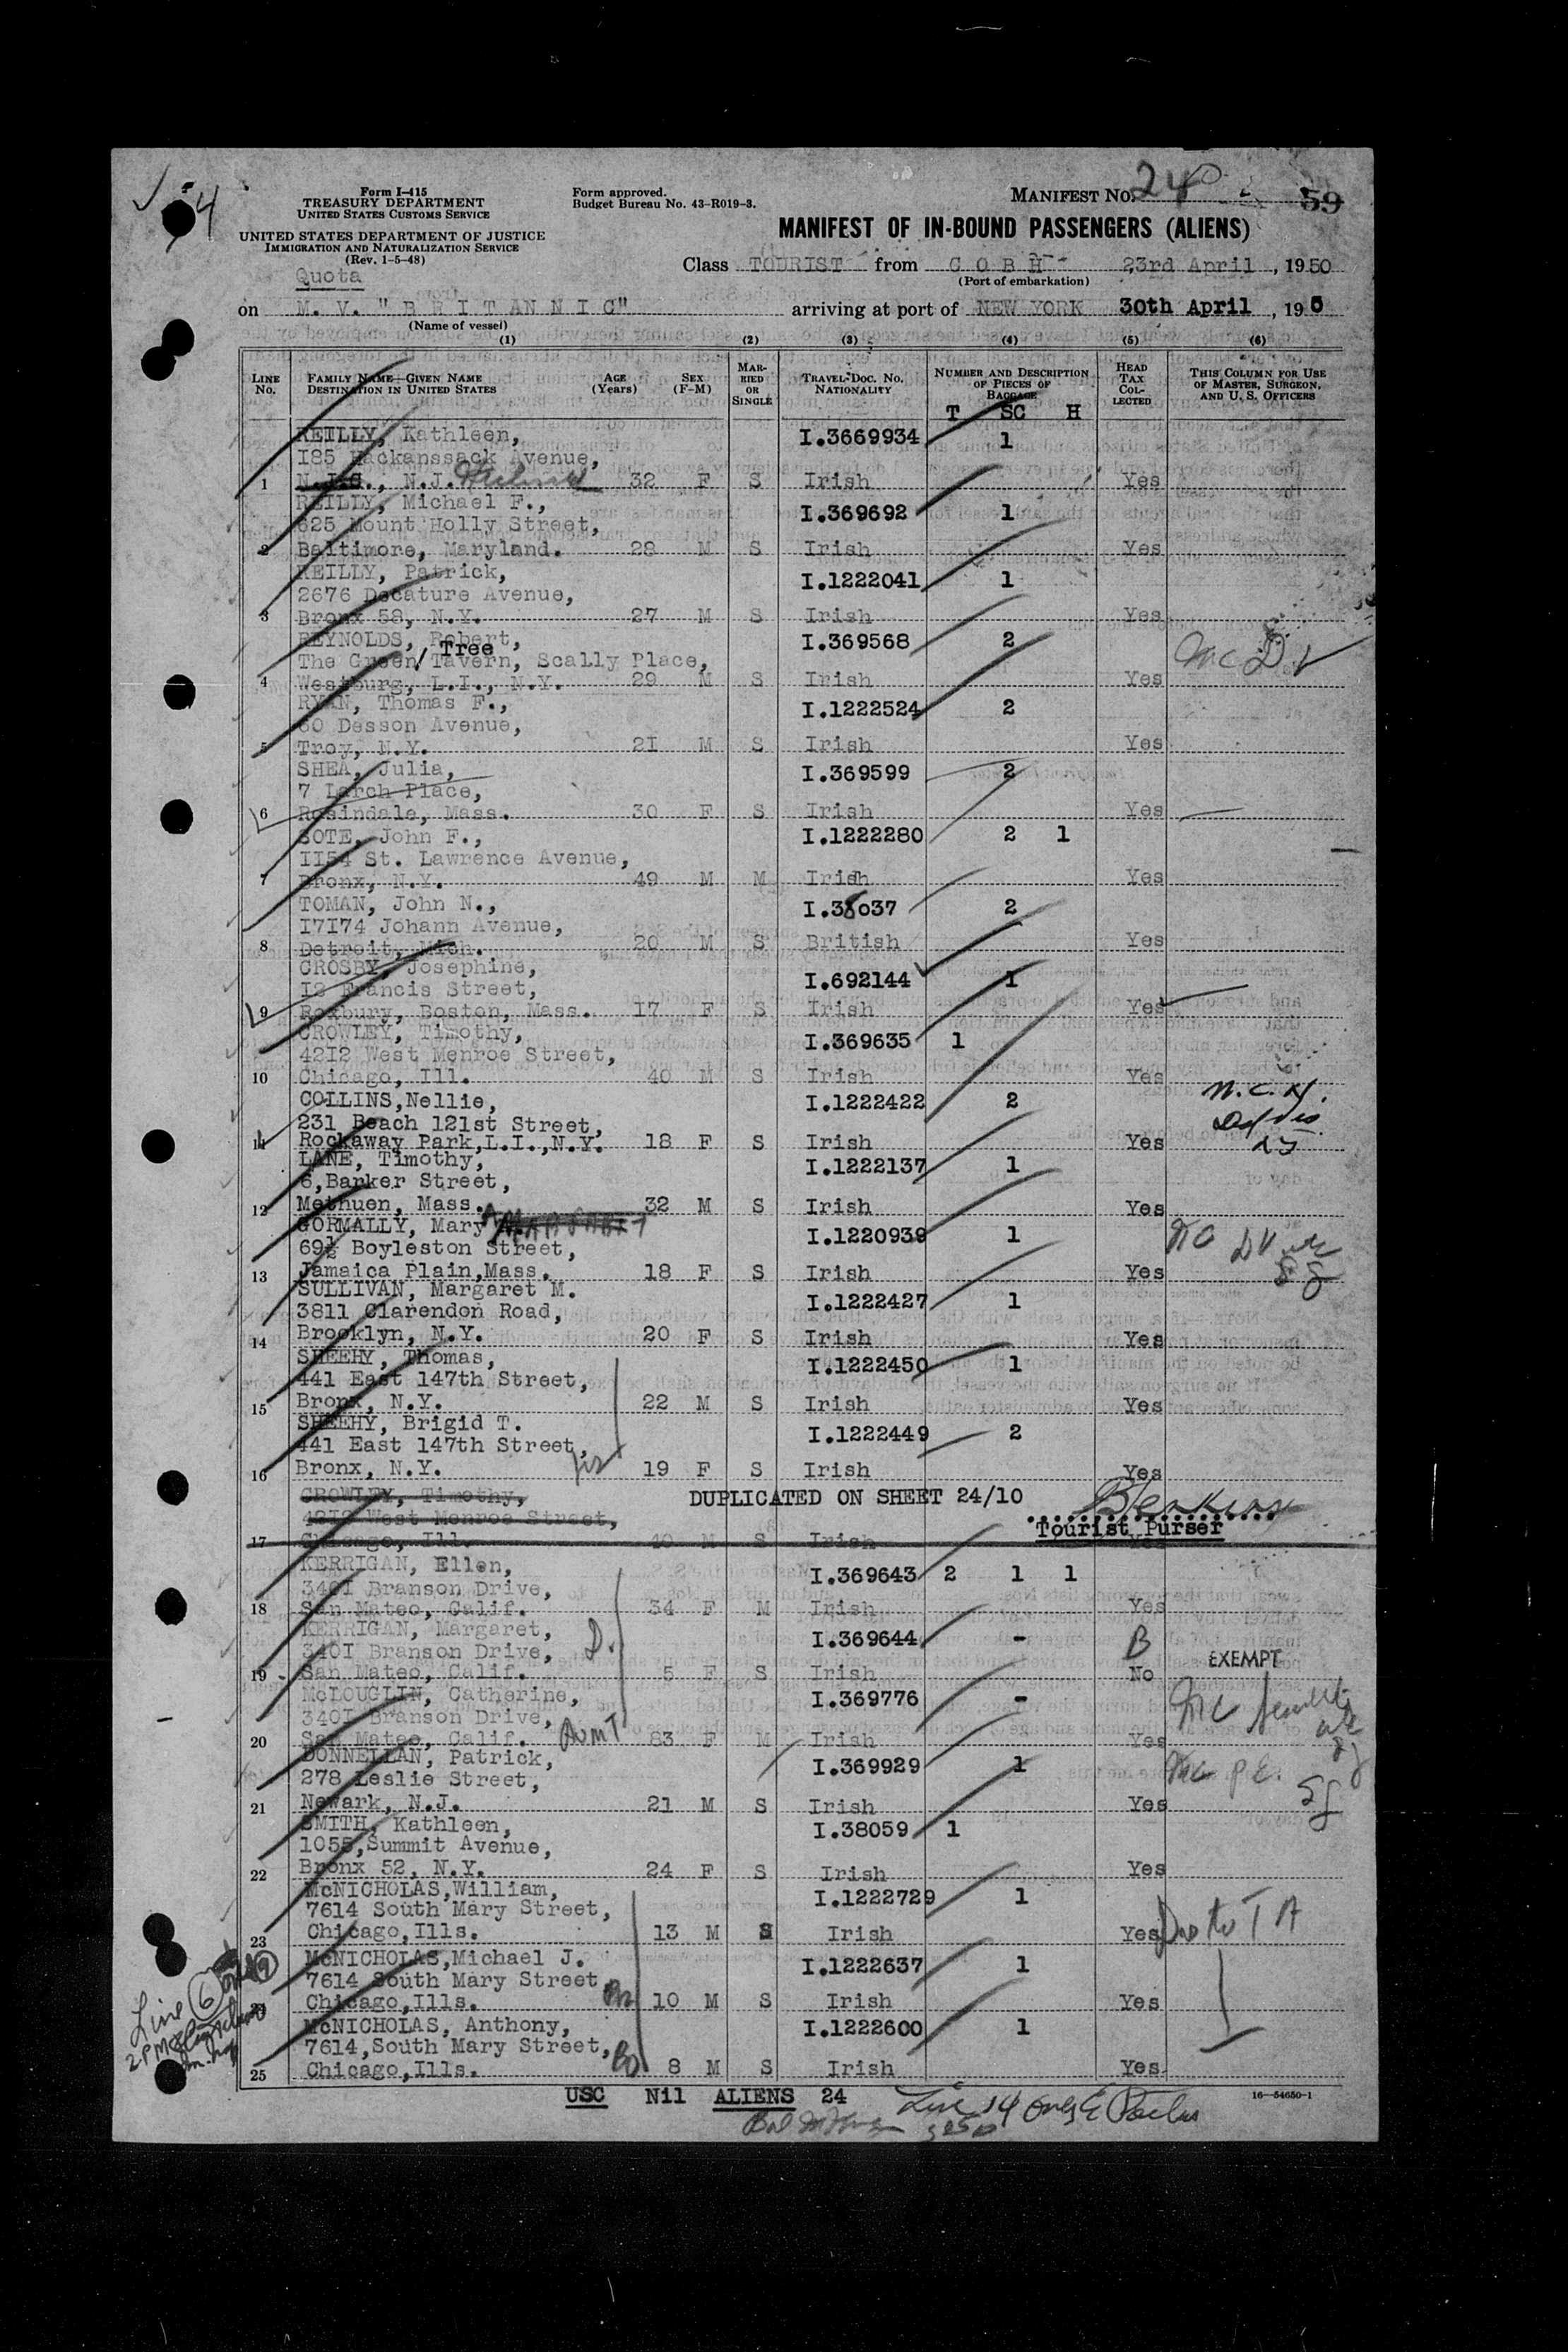 4
Form I-415
TREASURY DEPARTMENT
UNITED STATES CUSTOMS SERVICE
UNITED STATES DEPARTMENT OF JUSTICE
IMMIGRATION AND NATURALIZATION SERVICE
(Rev. 1-5-48)
Quota
Form approved.
Budget Bureau No. 43-R019-3.
MANIFEST NO. 24 59
MANIFEST OF IN-BOUND PASSENGERS (ALIENS)
Class TOURIST from COBH 23rd April, 1950
(Port of embarkation)
on M. V. "BRITANNIC" arriving at port of NEW YORK 30th April, 195
(Name of vessel)
(1) (2) (3) (4) (5) (6)
LINE NO. FAMILY NAME—GIVEN NAME DESTINATION IN UNITED STATES AGE (Years) SEX (F-M) MARRIED OR SINGLE TRAVEL DOC. NO. NATIONALITY NUMBER AND DESCRIPTION OF PIECES OF BAGGAGE HEAD TAX COLLECTED THIS COLUMN FOR USE OF MASTER, SURGEON, AND U. S. OFFICERS
T SC H
REILLY, Kathleen, I.3669934 1
185 Hackanssack Avenue,
1 N.J. 32 F S Irish Yes
REILLY, Michael F., I.369692 1
625 Mount Holly Street,
2 Baltimore, Maryland. 28 M S Irish Yes
REILLY, Patrick, I.1222041 1
2676 Decature Avenue,
3 Bronx 58, N.Y. 27 M S Irish Yes
REYNOLDS, Robert, I.369568 2
The Green / Tree Tavern, Scally Place,
4 Westburg, L.I., N.Y. 29 M S Irish Yes
RYAN, Thomas F., I.1222524 2
60 Desson Avenue,
5 Troy, N.Y. 21 M S Irish Yes
SHEA, Julia, I.369599 2
7 Larch Place,
6 Rosindale, Mass. 30 F S Irish Yes
SOTE, John F., I.1222280 2 1
1154 St. Lawrence Avenue,
7 Bronx, N.Y. 49 M M Irish Yes
TOMAN, John N., I.38037 2
17174 Johann Avenue,
8 Detroit, Mich. 20 M S British Yes
CROSBY, Josephine, I.692144 1
12 Francis Street,
9 Roxbury, Boston, Mass. 17 F S Irish Yes
CROWLEY, Timothy, I.369635 1
4212 West Monroe Street,
10 Chicago, Ill. 40 M S Irish Yes
COLLINS,Nellie, I.1222422 2
231 Beach 121st Street,
11 Rockaway Park,L.I.,N.Y. 18 F S Irish Yes
LANE, Timothy, I.1222137 1
6,Barker Street,
12 Methuen, Mass. 32 M S Irish Yes
GORMALLY, Mary I.1220939 1
69½ Boyleston Street,
13 Jamaica Plain,Mass. 18 F S Irish Yes
SULLIVAN, Margaret M. I.1222427 1
3811 Clarendon Road,
14 Brooklyn, N.Y. 20 F S Irish Yes
SHEEHY, Thomas, I.1222450 1
441 East 147th Street,
15 Bronx, N.Y. 22 M S Irish Yes
SHEEHY, Brigid T. I.1222449 2
441 East 147th Street,
16 Bronx, N.Y. 19 F S Irish Yes
CROWLEY, Timothy, DUPLICATED ON SHEET 24/10
4212 West Monroe Street, Tourist Purser
17 Chicago, Ill. 40 M S Irish Yes
KERRIGAN, Ellen, I.369643 2 1 1
3401 Branson Drive,
18 San Mateo, Calif. 34 F M Irish Yes
KERRIGAN, Margaret, I.369644 - B
3401 Branson Drive, D. EXEMPT
19 San Mateo, Calif. 5 F S Irish No
McLOUGLIN, Catherine, I.369776 -
3401 Branson Drive,
20 San Mateo, Calif. AUNT 83 F M Irish Yes
DONNELLAN, Patrick, I.369929 1
278 Leslie Street,
21 Newark, N.J. 21 M S Irish Yes
SMITH, Kathleen, I.38059 1
1055,Summit Avenue,
22 Bronx 52, N.Y. 24 F S Irish Yes
McNICHOLAS,William, I.1222729 1
7614 South Mary Street,
23 Chicago,Ills. 13 M S Irish Yes
McNICHOLAS,Michael J. I.1222637 1
7614 South Mary Street
24 Chicago,Ills. 10 M S Irish Yes
McNICHOLAS, Anthony, I.1222600 1
7614,South Mary Street,
25 Chicago,Ills. 8 M S Irish Yes
USC Nil ALIENS 24
Line 14 only
16—54650-1